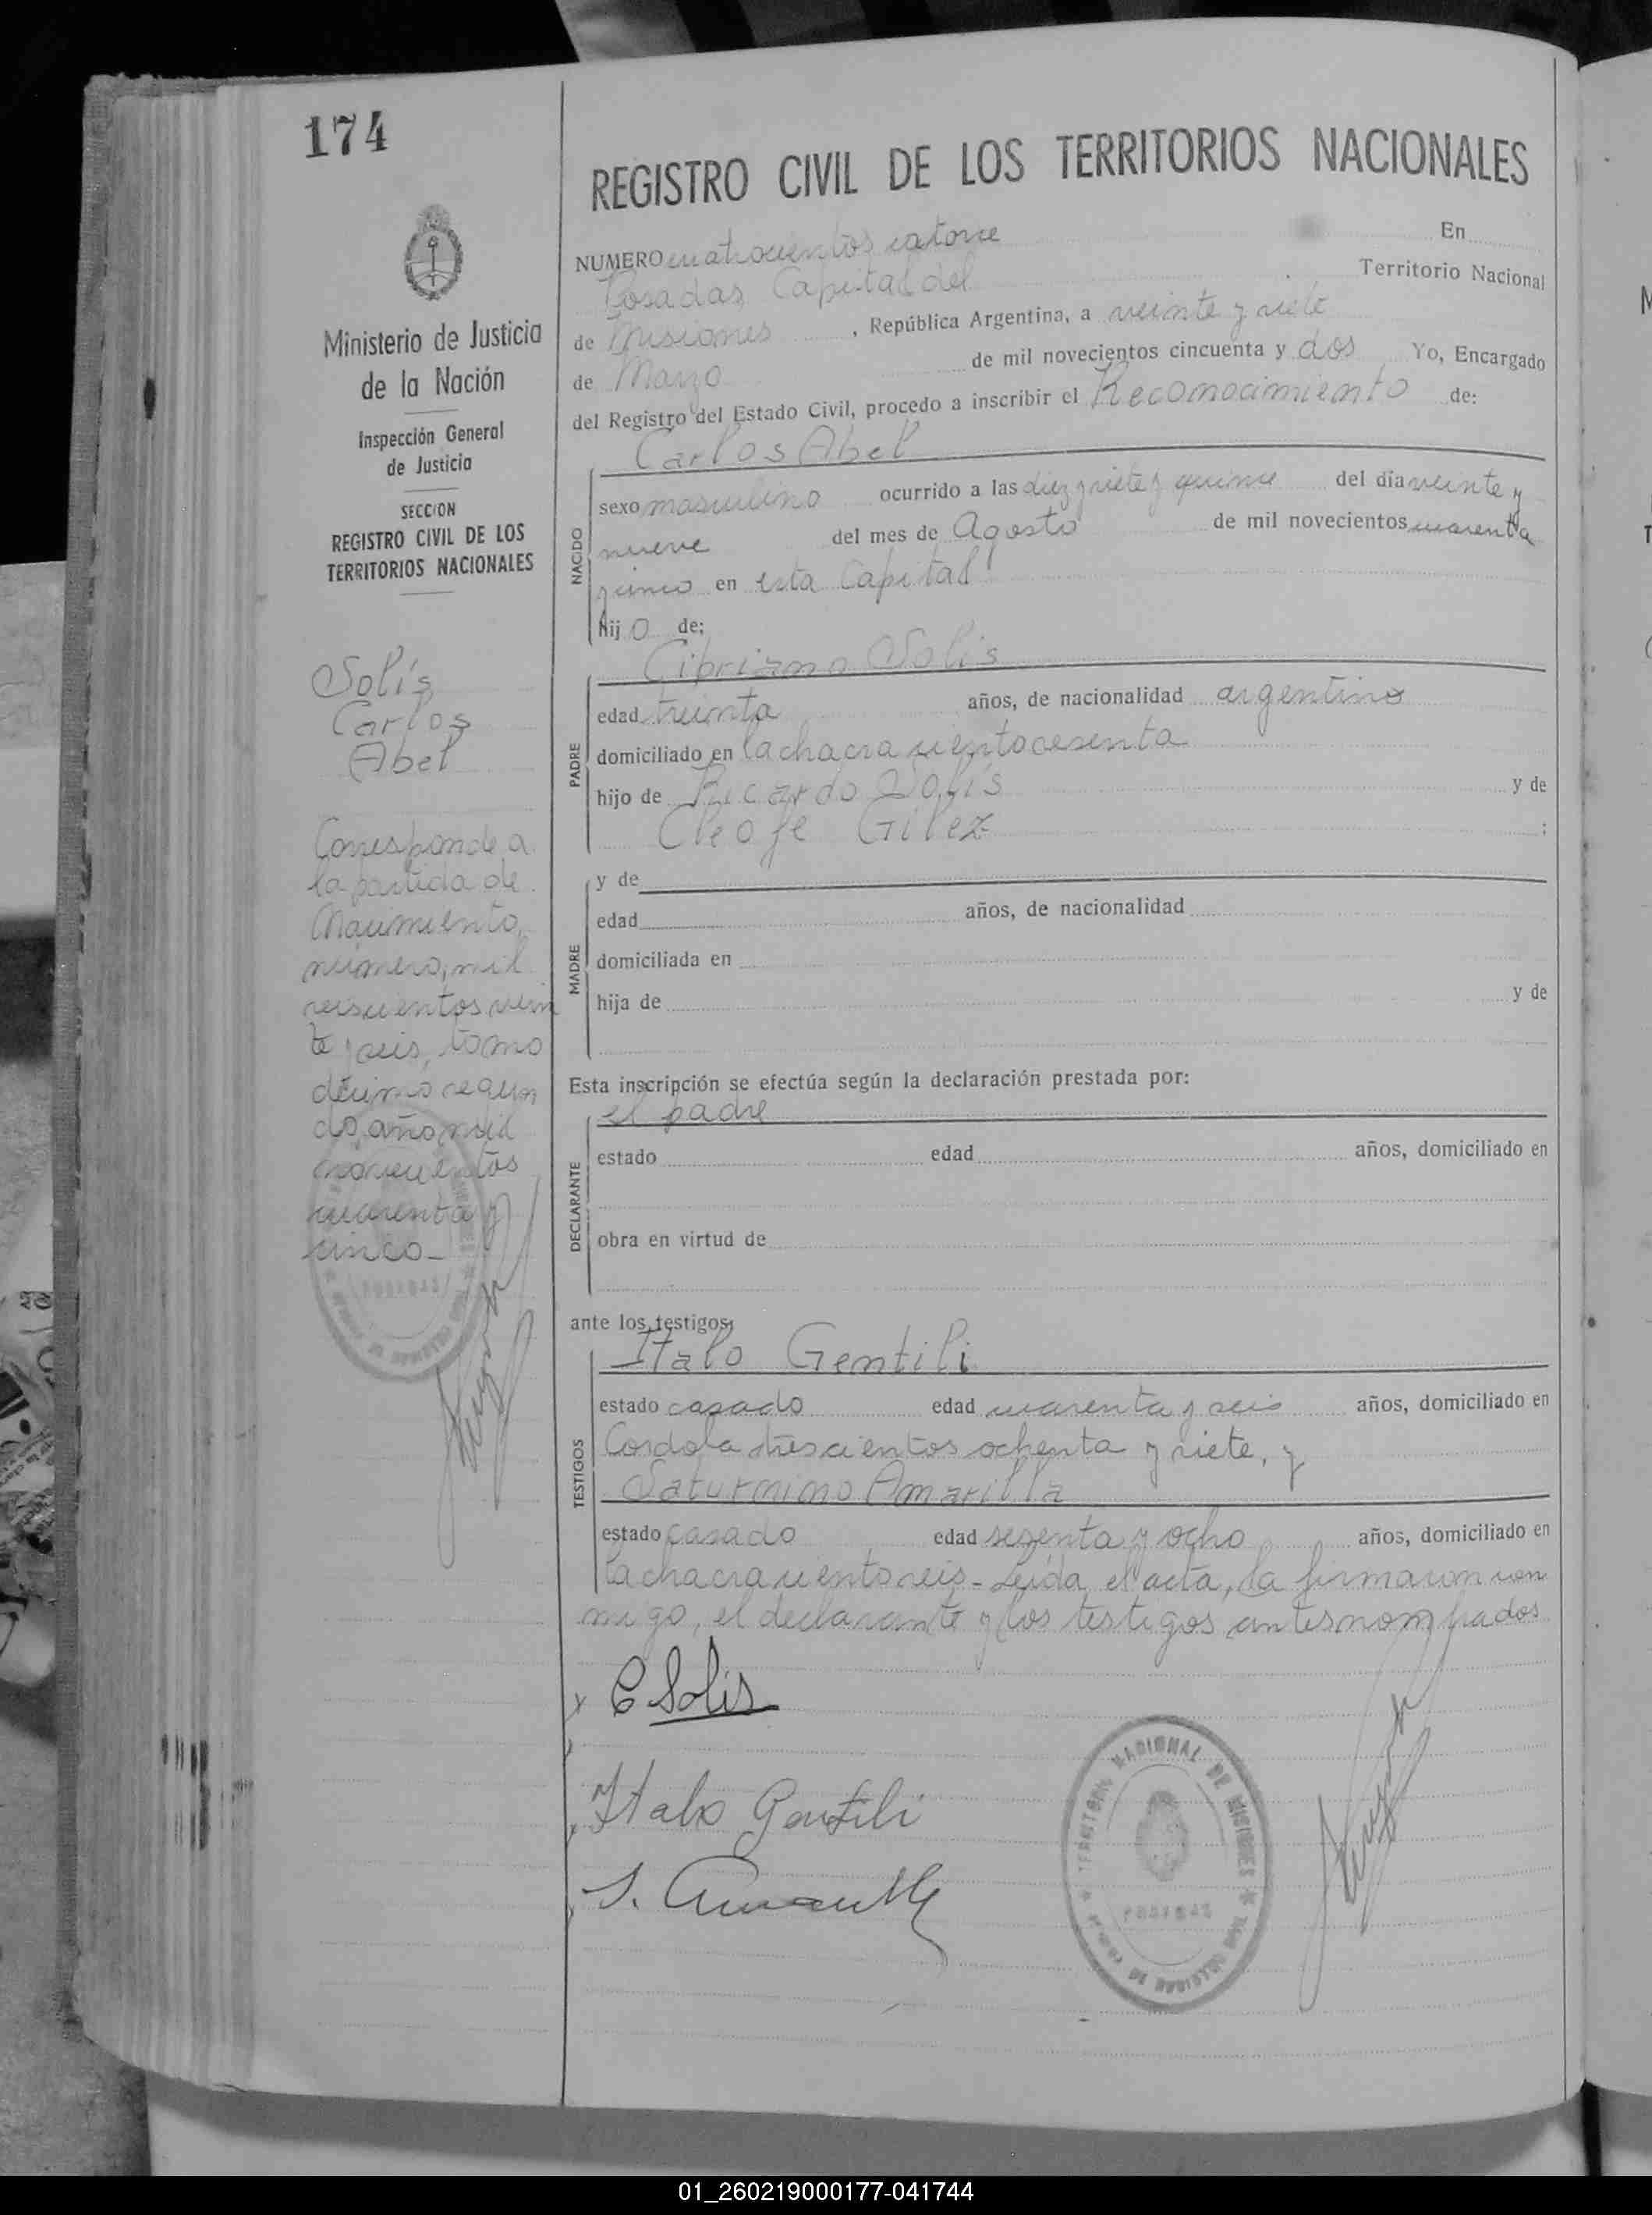 174
REGISTRO CIVIL DE LOS TERRITORIOS NACIONALES
Ministerio de Justicia
de la Nación
Inspección General
de Justicia
SECCION
REGISTRO CIVIL DE LOS
TERRITORIOS NACIONALES
Solís
Carlos
Abel
Corresponde a
la partida de
Nacimiento,
número, mil
seiscientos vein
te y seis, tomo
décimo segun
do, año mil
novecientos
cuarenta y
cinco_
NUMERO cuatrocientos catorce En
Posadas Capital del Territorio Nacional
de Misiones, República Argentina, a veinte y siete
de Marzo de mil novecientos cincuenta y dos Yo, Encargado
del Registro del Estado Civil, procedo a inscribir el Reconocimiento de:
Carlos Abel
NACIDO
sexo masculino ocurrido a las diez y siete y quince del dia veinte y
nueve del mes de Agosto de mil novecientos cuarenta
y cinco en esta Capital
hijo de:
Cipriano Solis
PADRE
edad treinta años, de nacionalidad argentino
domiciliado en la chacra ciento cesenta
hijo de Ricardo Solís y de
Cleofe Gilez :
MADRE
y de
edad años, de nacionalidad
domiciliada en
hija de y de
Esta inscripción se efectúa según la declaración prestada por:
el padre
DECLARANTE
estado edad años, domiciliado en
obra en virtud de
ante los testigos:
Italo Gentili
TESTIGOS
estado casado edad cuarenta y seis años, domiciliado en
Cordoba trescientos ochenta y siete, y
Saturnino Amarilla
estado casado edad sesenta y ocho años, domiciliado en
la chacra ciento seis - Leída el acta, la firmaron con
migo, el declarante y los testigos antes nombrados
C Solis
Italo Gentili
S. Amarilla
TERRITORIO NACIONAL DE MISIONES
POSADAS
01_260219000177-041744